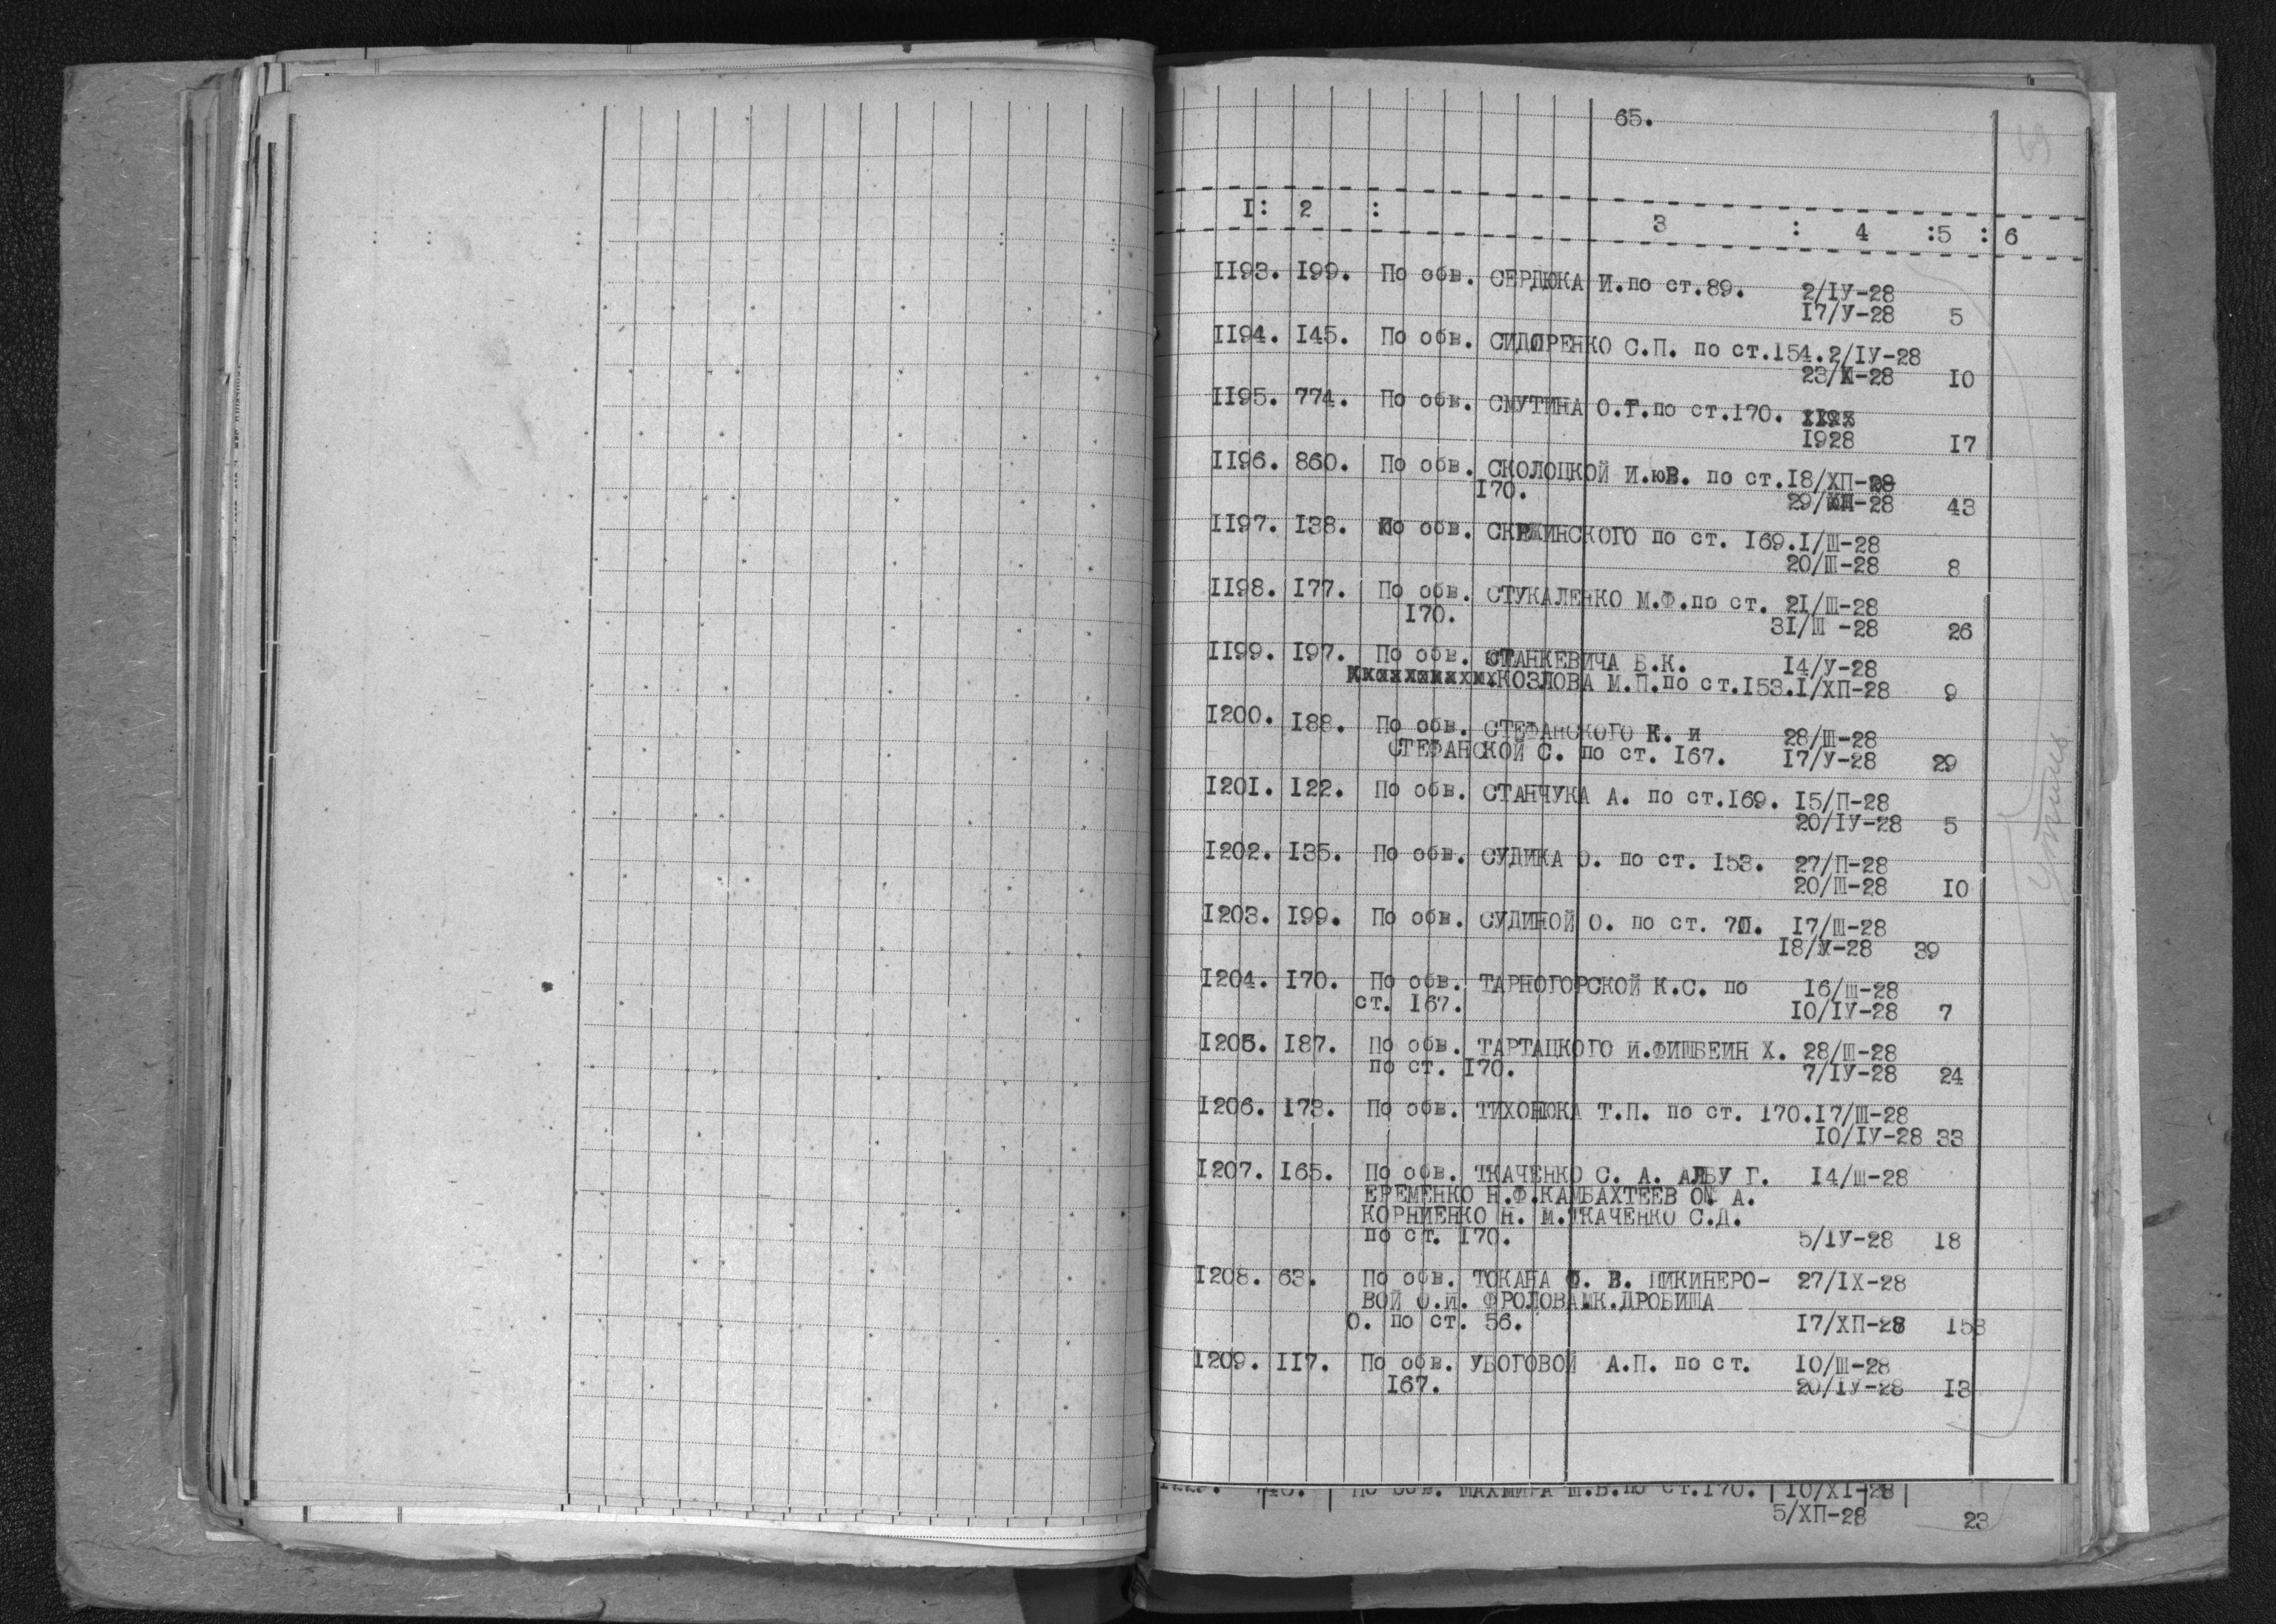 65.
I: 2 : 3 : 4 :5 : 6
II93. I99. По обв. СЕРДЮКА И.по ст.89. 2/IУ-28
I7/У-28 5
II94. I45. По обв. СИДОРЕНКО С.П. по ст.I54.2/IУ-28
23/X-28 IO
II95. 774. По обв. СМУТИНА О.Т.по ст.I70.
I928 I7
II96. 860. По обв. СКОЛОЦКОЙ И. В. по ст.I8/ХП-28
I70. 29/ХП-28 43
II97. I38. По обв. СКРЖИНСКОГО по ст. I69.I/Ш-28
20/Ш-28 8
II98. I77. По обв. СТУКАЛЕНКО М.Ф.по ст. 2I/Ш-28
I70. 3I/Ш -28 26
II99. I97. По обв. СТАНКЕВИЧА Б.К. I4/У-28
КОЗЛОВА М.П.по ст.I53.I/ХП-28 9
I200. I88. По обв. СТЕФАНСКОГО К. и 28/Ш-28
СТЕФАНСКОЙ С. по ст. I67. I7/У-28 29
I20I. I22. По обв. СТАНЧУКА А. по ст.I69. I5/П-28
20/IУ-28 5
I202. I35. По обв. СУДИКА О. по ст. I53. 27/П-28
20/Ш-28 IO
I203. I99. По обв. СУДИНОЙ О. по ст. I7/Ш-28
I8/X-28 39
I204. I70. По обв. ТАРНОГОРСКОЙ К.С. по I6/Ш-28
ст. I67. IO/IУ-28 7
I205. I87. По обв. ТАРТАЦКОГО И.ФИШБЕИН Х. 28/Ш-28
по ст. I70. 7/IУ-28 24
I206. I73. По обв. ТИХОНЮКА Т.П. по ст. I70.I7/Ш-28
IO/IУ-28 33
I207. I65. По обв. ТКАЧЕНКО С. А. АЛБУ Г. I4/Ш-28
ЕРЕМЕНКО Н.Ф.КАМБАХТЕЕВ О. А.
КОРНИЕНКО Н. М.ТКАЧЕНКО С.Д.
по ст. I70. 5/IУ-28 I8
I208. 63. По обв. ТОКАНА Ф. В. ПИКИНЕРО- 27/IX-28
ВОЙ О.И. ФРОЛОВА К.ДРОБИША
О. по ст. 56. I7/ХП-28 I53
I209. II7. По обв. УБОГОВОЙ А.П. по ст. IO/Ш-28
I67. 20/IУ-28 I3
По обв. М.В.по ст.I70. IO/XI-28
5/ХП-28 23